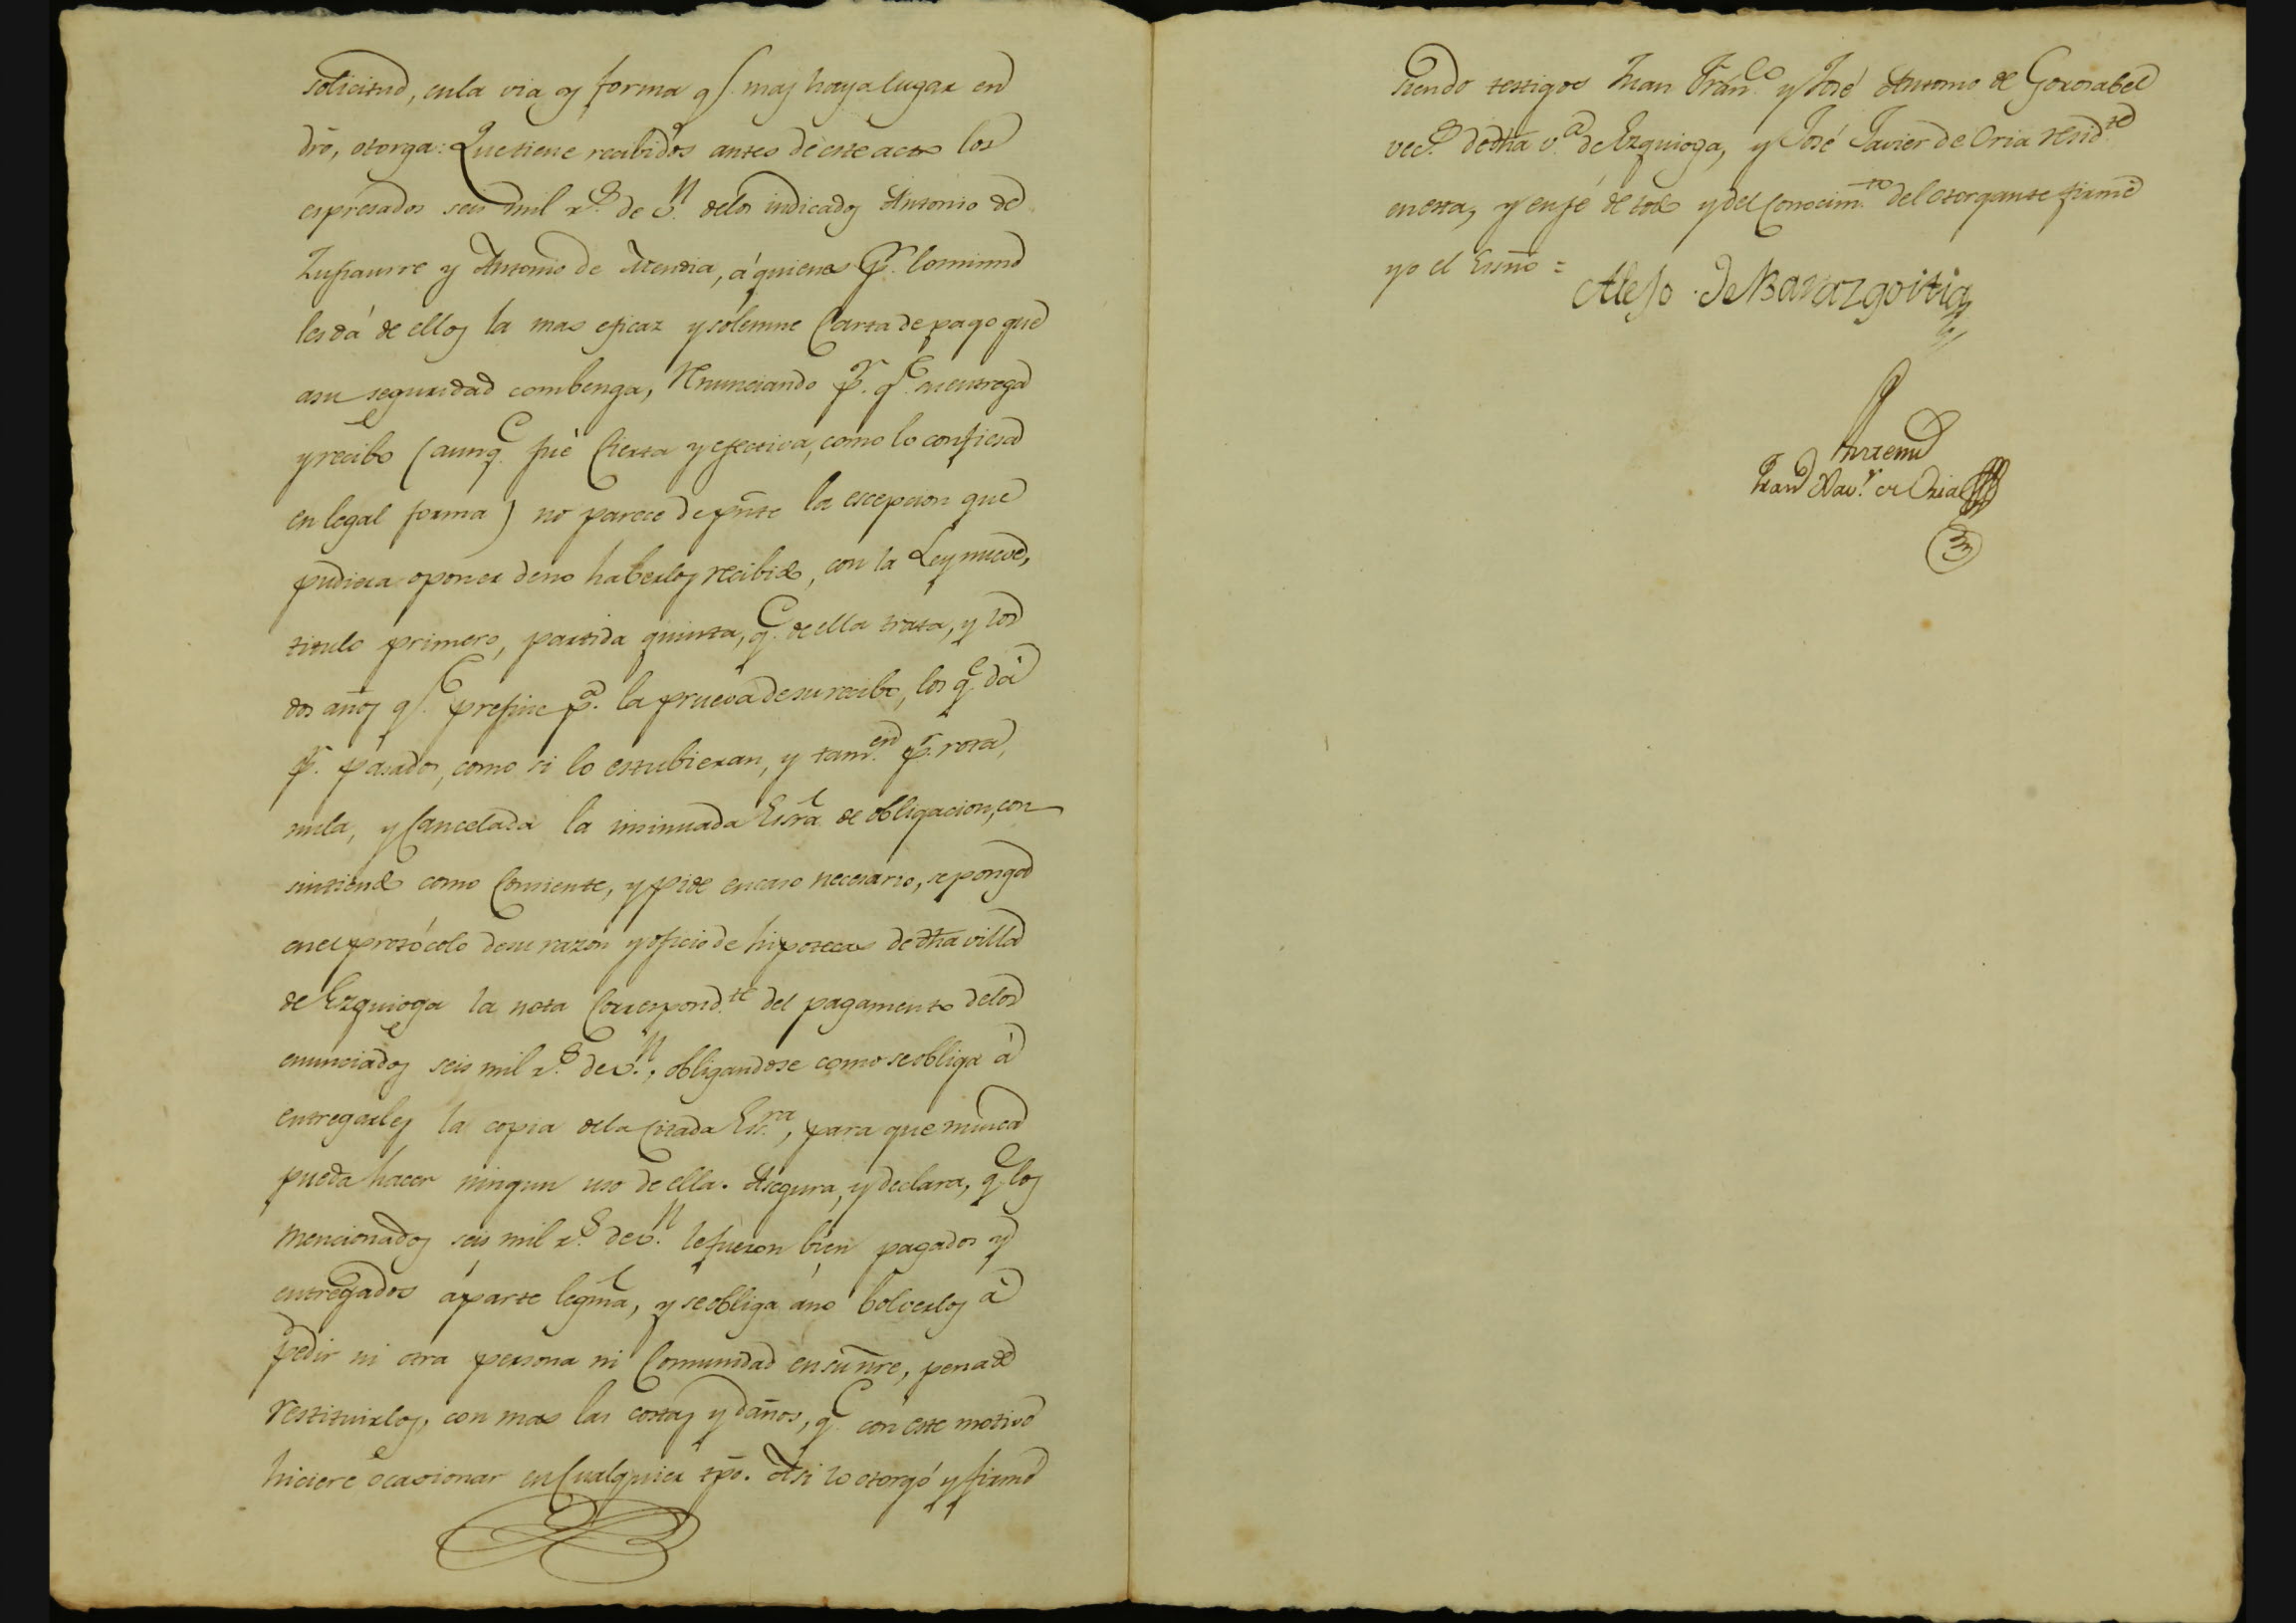 solicitud, en la via y forma q.e mas haya lugar en
dro, otorga: Que tiene recibidos antes de este acto los
espresados seis mil r.s de v.n delos indicados Antonio de
y Antonio de Mendia, á quienes p.r lo mismo
les dá de ellos la mas eficaz y solemne Carta de pago que
asu seguridad combenga, renunciando p.r q.e su entrega
y recibo (aunq.e fué Cierta y efectiva, como lo confiesa
en legal forma) no parece de pnte la escepcion que
pudiera oponer deno haberlos recibido, con la Ley nueve,
titulo primero, partida quinta, q.e de ella trata, y los
dos años q.e prefine p.a la prueva de su recibo, los q.e dá
p.r pasados, como si lo estubieran, y tam.en p.r rota,
nula, y Cancelada la insinuada Esra de obligacion, con
sintiendo como Consiente, y pide en caso necesario, se ponga
en el protócolo de su razon y oficio de hipotecas de dha villa
de Ezquioga la nota Correspond.te del pagamento delos
enunciados seis mil r.s de v.n, obligandose como se obliga á
entregarles la copia dela Citada Es.ra, para que nunca
pueda hacer ningun uso de ella. Asegura, y declara, q.e los
mencionados seis mil r.s de v.n le fueron bien pagados y
entregados áparte legma, y se obliga áno bolverlos á
pedir ni otra persona ni Comunidad en su nre, pena de
restituirlos, con mas las costas y daños, q.e con este motivo
hiciere ocasionar en Cualquier tpo. Asi lo otorgó y firmó
siendo testigos Juan Fran.co y José Antonio de Gorosabel
vec.s de dha v.a de Ezquioga, y José Javier de Oria resid.te
en esta, y en fé de todo y del Conocim.to del otorgante firmé
yo el Esno =
Alejo de Barazgoitia
Antemi
Fran Xav.r de Oria